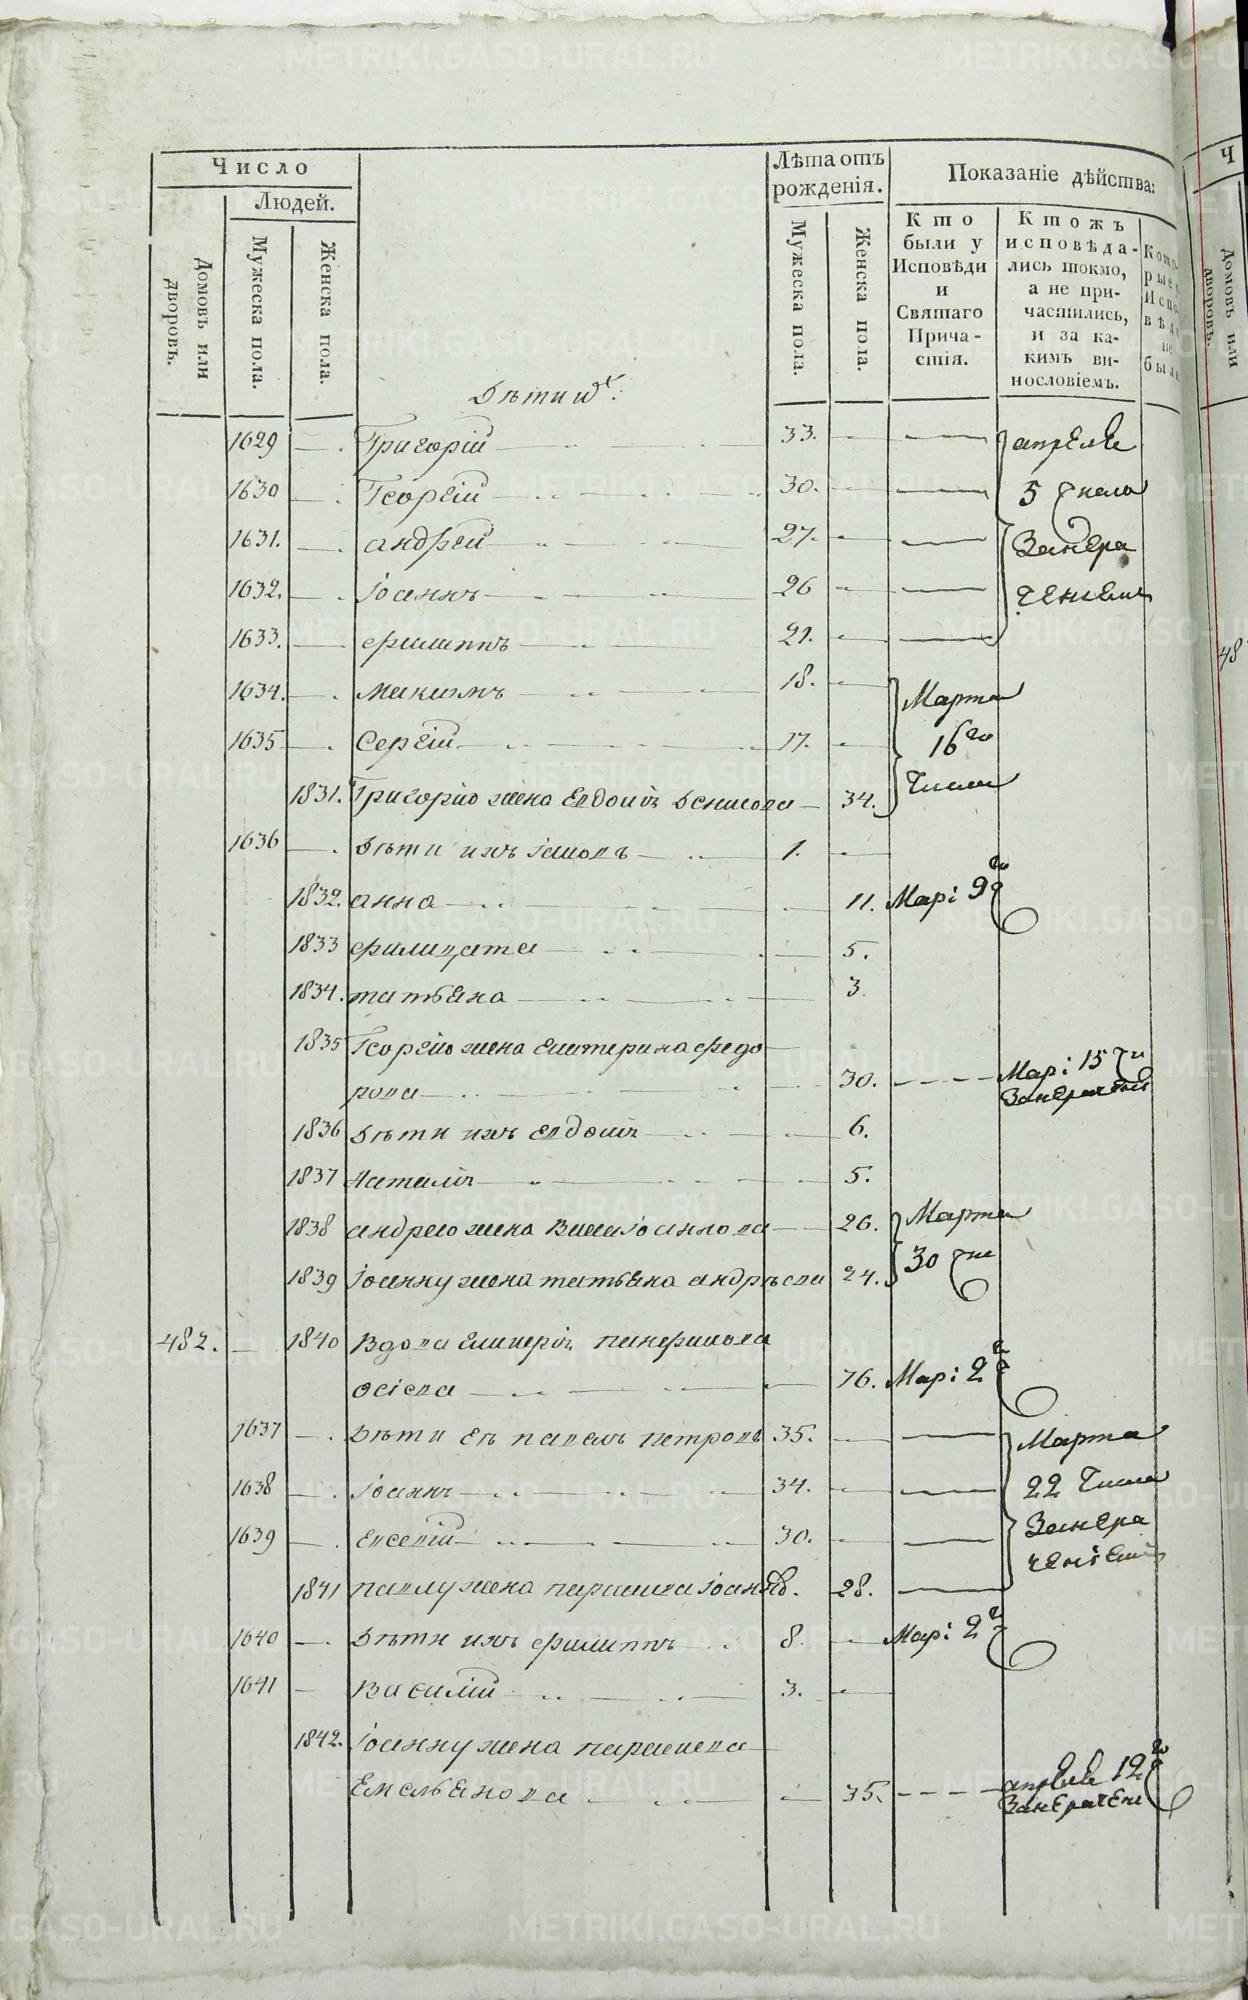 Число
Людей.
Домовъ или дворовъ.
Мужеска пола.
Женска пола.
Лѣта отъ рожденія.
Мужеска пола.
Женска пола.
Показаніе дѣйства:
Кто были у Исповѣди и Святаго Причастія.
Ктожъ исповѣдались токмо, а не причастились, и за какимъ винословіемъ.
Дѣти
1629 — Григорій — 33. — — апреля
1630 — Георгій — 30. — — 5 числа
1631. — андрей — 27. — — Занера
1632. — Іоаннъ — 26 — — ченіемъ
1633. — филиппъ — 21. — —
1634. — Максимъ — 18. — Марта
1635 — Сергій — 17. — 16го
Числа
1831. Григорію жена Евдокія Денисова — 34.
1636 — Дѣти ихъ Іаковъ — 1. —
1832. анна — 11. Мар: 9го
1833 филицата — 5.
1834. татьяна — 3.
1835 Георгію жена екатерина федо
рова — 30. — Мар: 15 чи
Занераченіе
1836 Дѣти ихъ евдокія — 6.
1837 Наталія — 5.
1838 андрею жена Васса Іоаннова — 26. Марта
1839 Іоанну жена татьяна андрѣева 24. 30 чис
482. — 1840 Вдова Гликерія панфилова
76. Мар: 2
1637 — Дѣти ея павелъ петровъ 35. — — Марта
1638 — Іоаннъ — 34. — — 22 Числа
1639 — Евсевій — 30. — — Занера
ченіемъ
1841 павлу жена параскева Іоанно. 28. —
1640 — Дѣти ихъ филиппъ — 8. — Мар: 2
1641 — Василій — 3. —
1842. Іоанну жена параскева —
Емельянова — 35. — апреля 12го
Занерачені